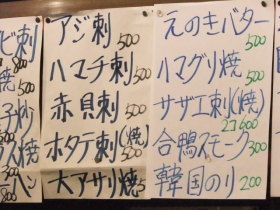 えのきバター
500
ハマグリ焼
500
サザエ刺(焼)
2ケ600
合鴨スモーク
300
韓国のり 200
アジ刺
500
ハマチ刺
500
赤貝刺
500
ホタテ刺(焼)
500
大アサリ焼
ビ刺
800
焼
500